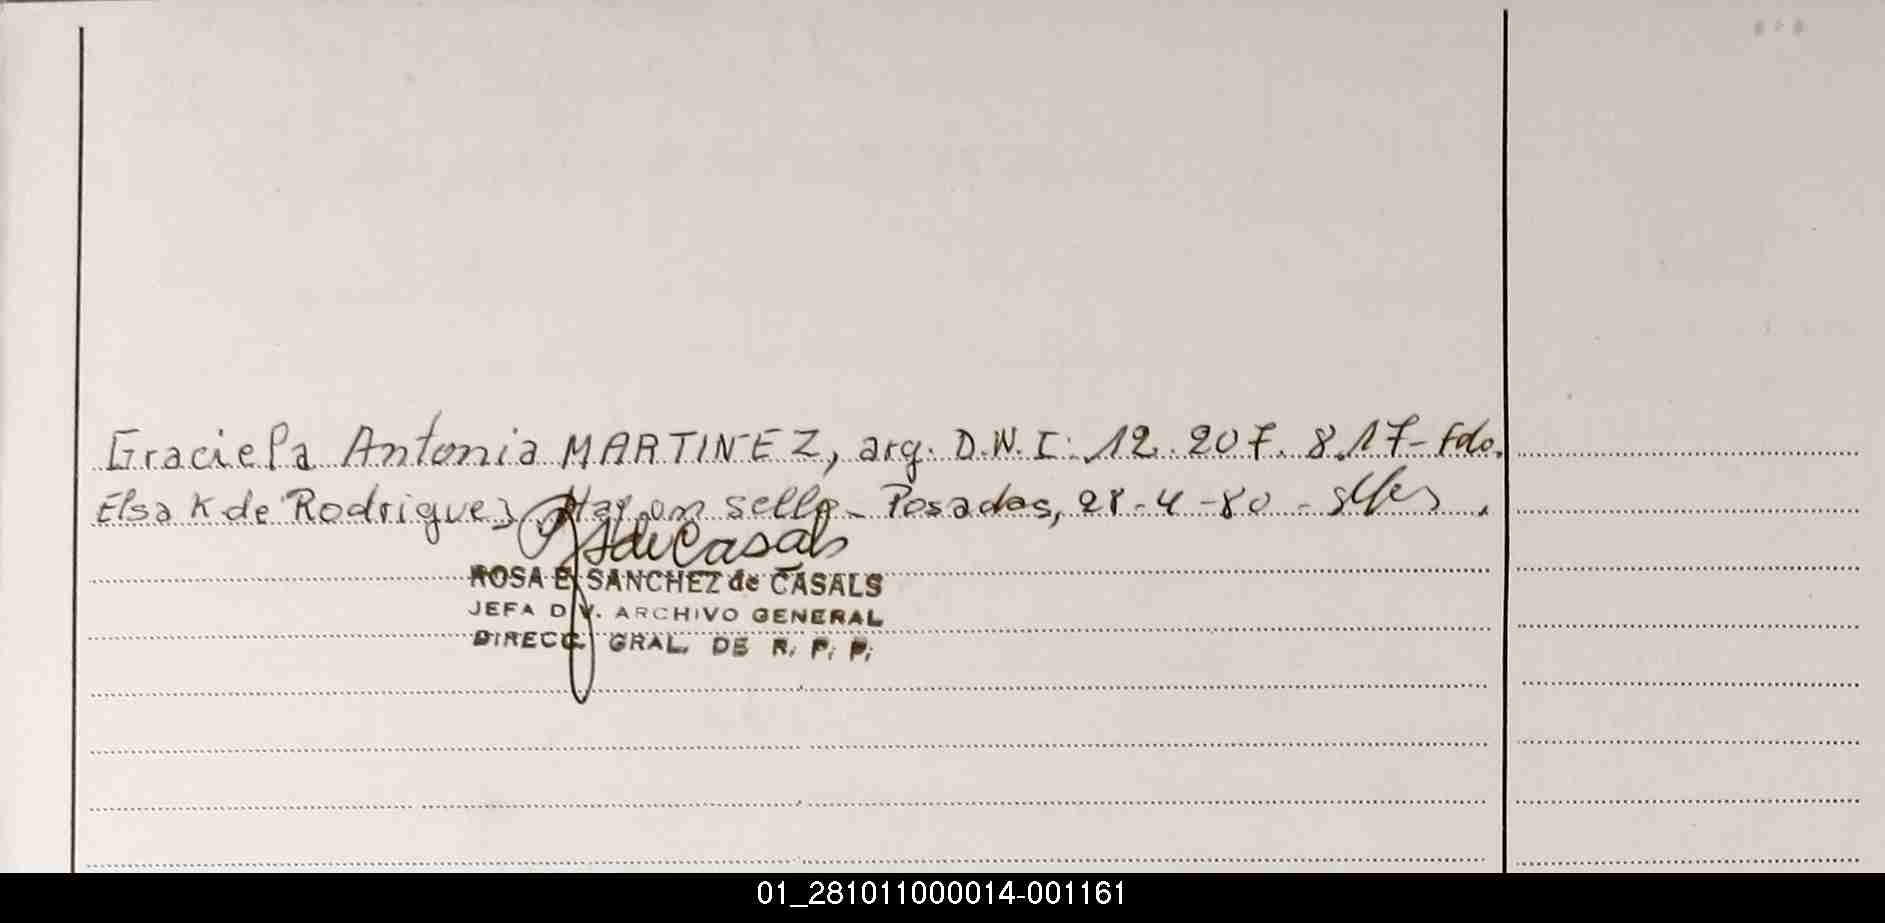 Graciela Antonia MARTINEZ, arg. D.N.I: 12.207.817- Fdo.
Elsa K de Rodriguez Hay un sello - Posadas, 28-4-80 -
ROSA E. SANCHEZ de CASALS
JEFA DIV. ARCHIVO GENERAL
DIRECC. GRAL. DE R. P. P.
01_281011000014-001161